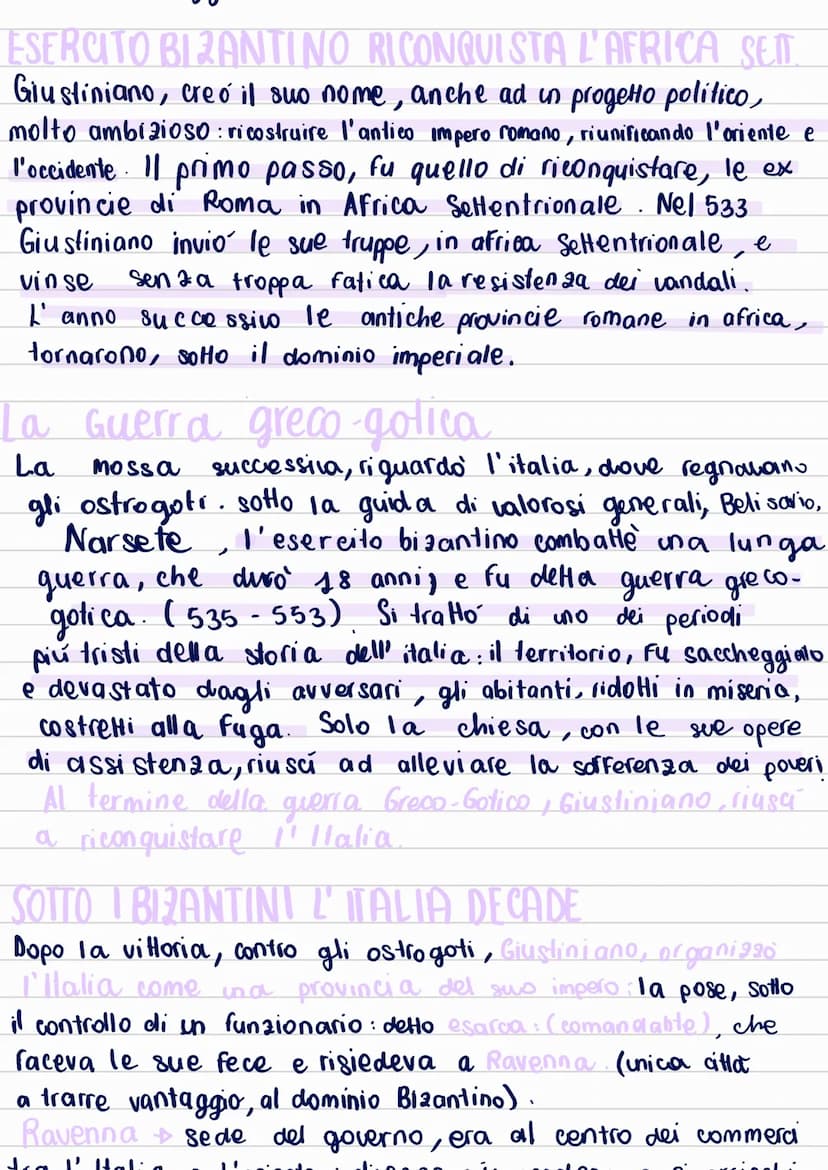 ESERCITO BIZANTINO RICONQUISTA L'AFRICA SETT.
Giustiniano, creó il suo nome, anche ad un progetto político,
molto ambizioso: ricostruire l'antico impero romano, riunificando l'oriente e
l'occidente. Il primo passo, fu quello di riconquistare, le ex
provincie di Roma in Africa Settentrionale. Nel 533
Giustiniano inviò le sue truppe, in africa Settentrionale, e
vinse senza troppa fatica la resistenza dei vandali.
L'anno successivo le antiche provincie romane in africa,
tornarono, sotto il dominio imperiale.
La Guerra greco-gotica
La mossa successiva, riguardò l'italia, dove regnavano
gli ostrogoti. sotto la guida di valorosi generali, Belisario,
Narsete, l'esercito bizantino combattè una lunga
guerra, che durò 18 anni; e fu detta guerra greco-
gotica. (535-553) Si trattò di uno dei periodi
piú tristi della storia dell'italia: il territorio, fu saccheggiato
e devastato dagli avversari, gli abitanti, ridotti in miseria,
costretti alla fuga. Solo la chiesa, con le sue opere
di assistenza, riuscí ad alleviare la sofferenza dei poveri
Al termine della guerra Greco-Gotico, Giustiniano, riuscì
a riconquistare l'Italia.
SOTTO I BIZANTINI L'ITALIA DECADE
Dopo la vittoria, contro gli ostrogoti, Giustiniano, organizzò
l'Italia come una provincia del suo impero: la pose, sotto
il controllo di un funzionario: detto esarca: (comandante), che
faceva le sue fece e risiedeva a Ravenna. (unica città
a trarre vantaggio, al domínio Bizantino).
Ravenna → sede del governo, era al centro dei commerci